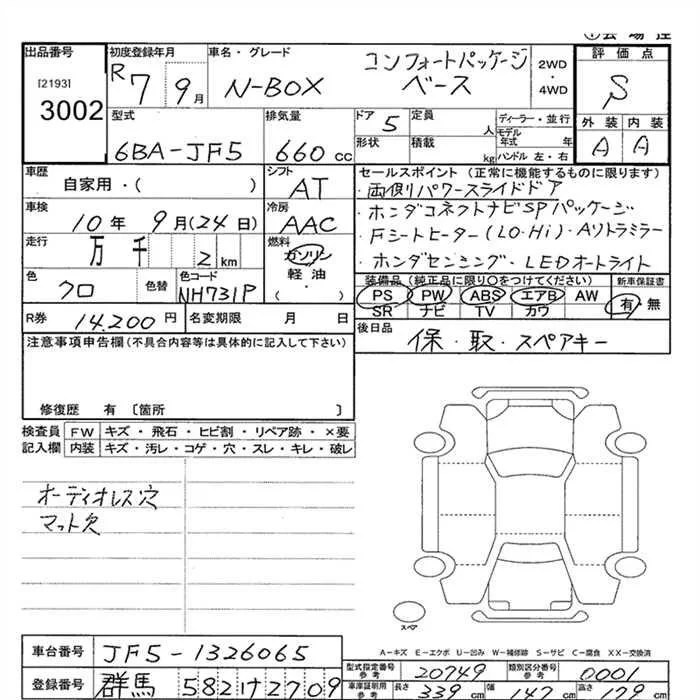 出品番号 初度登録年月 車名・グレード 評価点
[2193] 3002
R7 9月
N-BOX コンフォートパッケージ ベース
2WD・4WD
S
型式 排気量 ドア 定員 ディーラー・並行 外装 内装
6BA-JF5 660cc 5 人 モデル年式 年 A A
形状 積載 kg ハンドル 左・右
車歴 シフト セールスポイント (正常に機能するものに限ります)
自家用・( ) AT ・両側パワースライドドア
車検 冷房 ・ホンダコネクトナビSPパッケージ
10年 9月(24日) AAC ・Fシートヒーター(LO・Hi)・Aソトラミラー
走行 燃料 ・ホンダセンシング・LEDオートライト
万 千 2km ガソリン 軽油 ( )
色 色替 色コード 装備品 (純正品に限り○をつけてください) 新車保証書
クロ NH731P PS PW ABS エアB AW 有・無
SR ナビ TV カワ
R券 14,200円 名変期限 月 日 後日品
保・取・スペアキー
注意事項申告欄(不具合内容等は具体的に記入して下さい)
修復歴 有 〔箇所 〕
検査員 FW キズ・飛石・ヒビ割・リペア跡・×要
記入欄 内装 キズ・汚レ・コゲ・穴・スレ・キレ・破レ
オーディオレス穴
マット欠
スペア
A-キズ E-エクボ U-凹み W-補修跡 S-サビ C-腐食 XX-交換済
車台番号 JF5-1326065
型式指定番号 参考 20749 類別区分番号 参考 0001
登録番号 群馬 582け2709
車庫証明用 参考 長さ 339cm 幅 147cm 高さ 179cm